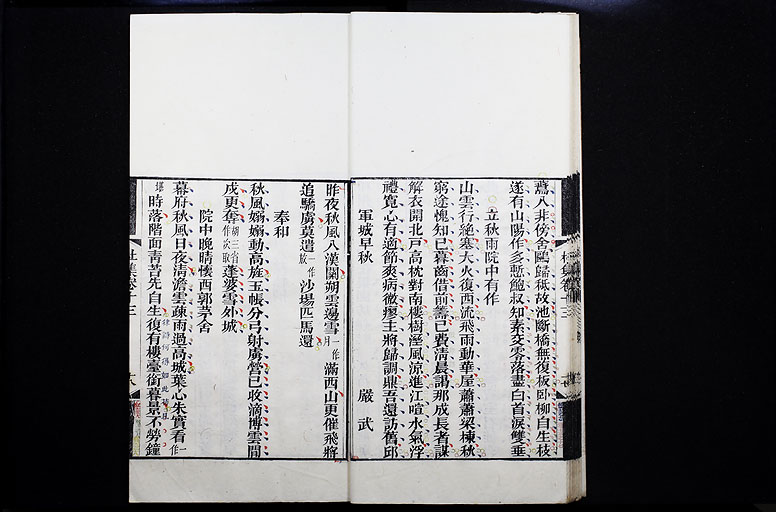 鷰入非傍舍鷗歸秪故池斷橋無復板臥柳自生枝
遂有山陽作多慙鮑叔知素交零落盡白首淚雙垂
立秋雨院中有作
山雲行絕塞大火復西流飛雨動華屋蕭蕭梁棟秋
窮途愧知己暮齒借前籌已費清晨謁那成長者謀
解衣開北戶高枕對南樓樹溼風涼進江喧水氣浮
禮寬心有適節爽病微瘳主將歸調鼎吾還訪舊邱
軍城早秋 嚴武
昨夜秋風入漢關朔雲邊雪一作月滿西山更催飛將
追驕虜莫遣一作放沙場匹馬還
奉和
秋風嫋嫋動高旌玉帳分弓射虜營已收滴博雲間
戍更奪蓬婆雪外城
院中晚晴懷西郭茅舍
幕府秋風日夜清澹雲疎雨過高城葉心朱實看一作
堪時落階面青苔先自生復有樓臺銜暮景不勞鐘
杜集卷十三